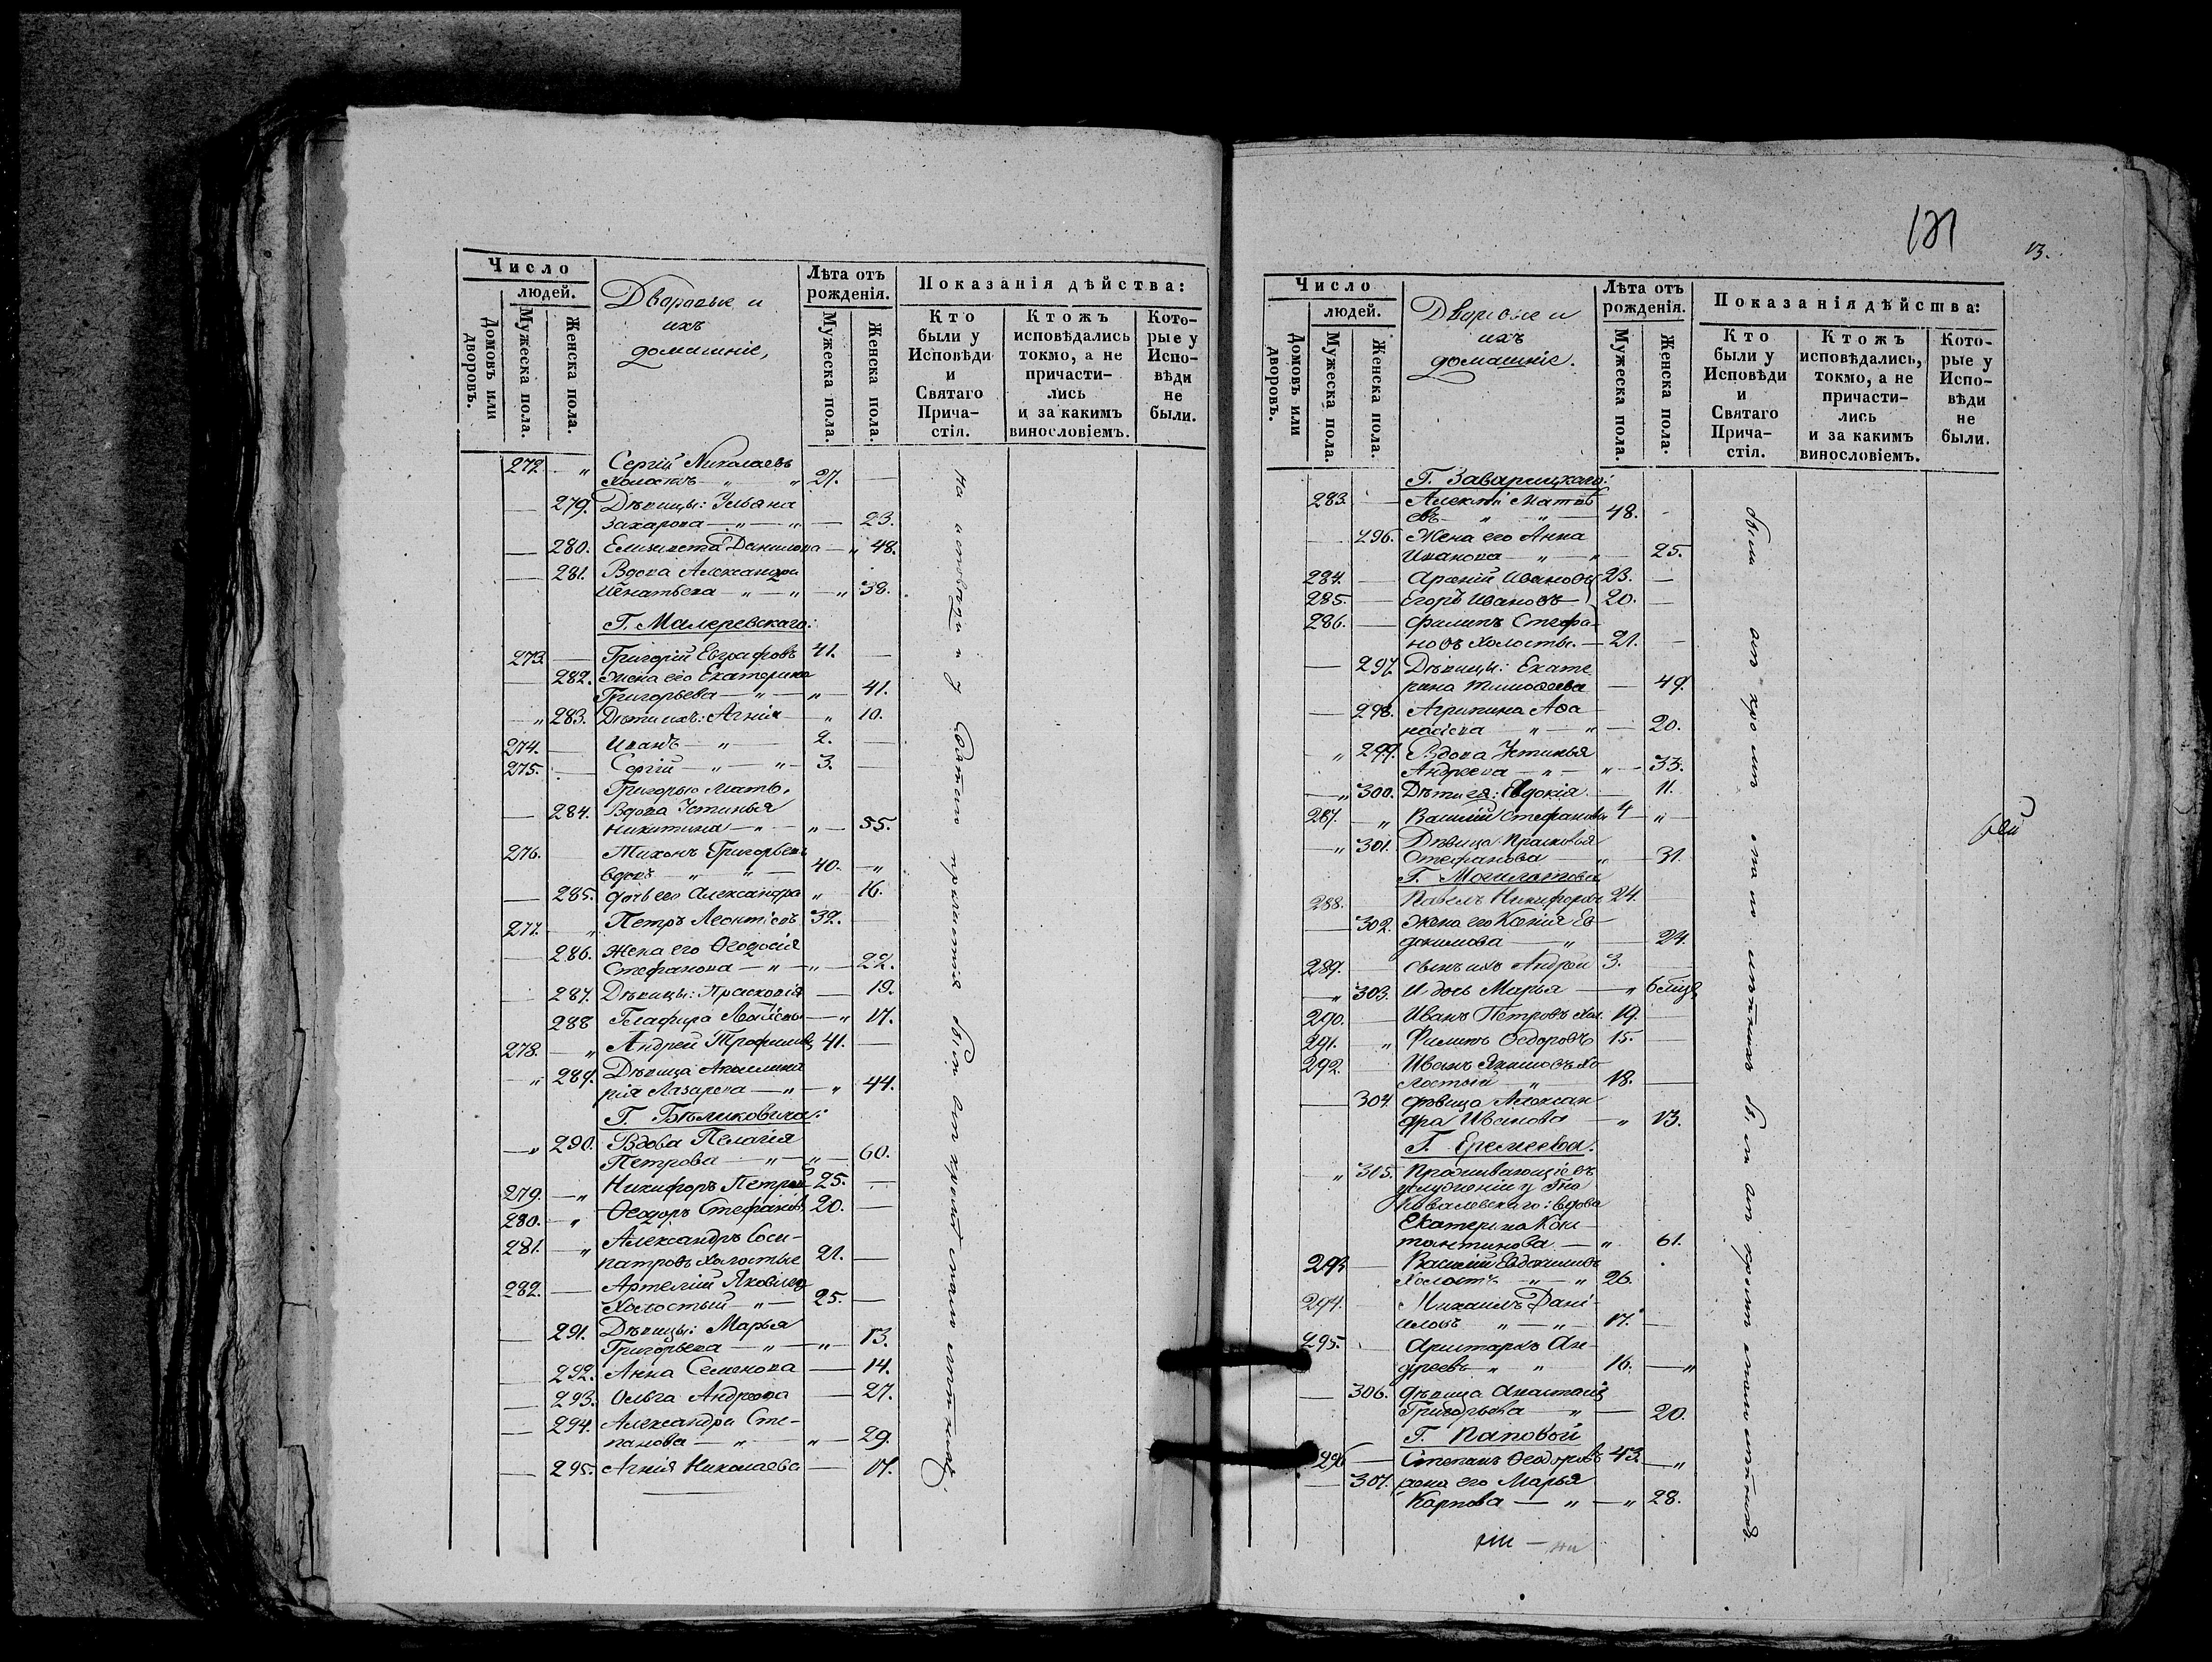 Число
людей.
Домовъ или дворовъ.
Мужеска пола.
Женска пола.
Дворовые и
ихъ
домашніе,
Лѣта отъ
рожденія.
Мужеска пола.
Женска пола.
Показанія дѣйства:
Кто
были у
Исповѣди
и
Святаго
Прича-
стія.
Ктожъ
исповѣдались
токмо, а не
причасти-
лись
и за какимъ
винословіемъ.
Кото-
рые у
Испо-
вѣди
не
были.
272. — „ Сергій Николаевъ
Холостъ — „ „ 27. —
— 279. Дѣвицы: Ульяна
Захарова — „ — „ — 23.
— 280. Елизавета Данилова — „ 48.
— 281. Вдова Александра
Игнатьева — „ — „ — „ 38.
Г. Малеревскаго:
273. — Григорій Евграфовъ 41. —
— 282. Жена его Екатерина
Григорьева — „ — „ — 41.
— „ 283. Дѣти ихъ: Агнія — „ 10.
274. — Иванъ — „ — 2. —
275. — Сергій — „ — „ — 3. —
Григорью мать,
— 284. Вдова Устинья
Никитина — „ — „ — 55.
276. Григорьевъ
вдов — „ „ — 40. — „
— 285. дочь его Александра „ 16.
277. „ Петръ Леонтіевъ 32. —
— 286. Жена его Ѳеодосія
Стефанова — „ — „ — 22.
— 287. Дѣвицы: Прасковія — 19.
288 Глафира — „ 17.
278. — „ Андрей Трофимовъ 41. —
— „ 289. Дѣвица Аполлина
рія Лазарева — „ — „ 44.
Г. Бѣликовича:
— „ 290. Вдова Пелагія
Петрова — „ — „ — 60.
279. — „ Никифоръ Петровъ 25. —
280. — „ Ѳеодоръ Стефановъ 20. —
281. — „ Александръ Соси-
патровъ Холостые 21. —
282. — Яковлевъ
Холостый — „ — 25. —
— 291. Дѣвицы: Марья
Григорьева — „ — „ — 13.
— 292. Анна Семенова — 14.
— 293. Ольга Андреева — 27.
— 294. Александра Сте-
панова — „ — „ — 29.
— 295. Агнія Николаева — 17.
на исповѣди и у Святаго причастія
131
13.
Число
людей.
Домовъ или дворовъ.
Мужеска пола.
Женска пола.
Дворовые и
ихъ
домашніе.
Лѣта отъ
рожденія.
Мужеска пола.
Женска пола.
Показанія дѣйства:
Кто
были у
Исповѣди
и
Святаго
Прича-
стія.
Ктожъ
исповѣдались,
токмо, а не
причасти-
лись
и за какимъ
винословіемъ.
Кото-
рые у
Испо-
вѣди
не
были.
Г. Заварицкаго:
283. — Алексѣй Матвѣ
евъ — „ „ — 48. -
— 296. Жена его Анна
Иванова — „ — „ — 25.
284. — Арсеній Ивановъ 23. —
285. — Егоръ Ивановъ — 20. —
286. — Филипъ Стефа-
новъ холосты. — 21. —
— 297. Дѣвицы: Екате
рина Тимофеева — 49.
— 298. Агрипина Аѳа
насіева „ — „ — 20.
„ 299. Вдова Устинья
Андреева — „ — „ — 33.
— „ 300. Дѣти ея: Евдокія — 11.
287. — „ Василій Стефановъ 4 — „ —
— „ 301. Дѣвица Прасковья
Стефанова — „ — 31.
Г.
288. — Павелъ Никифоровъ 24. —
— 302. Жена его Ксенія Ев-
докимова — „ — 24.
289. — сынъ ихъ Андрей 3. —
— „ 303. И дочь Марья — „ 6 мѣся
290. — Иванъ Петровъ Хол. 19. —
291. — „ Филипъ Ѳедоровъ 15. —
292. — Иванъ Якимовъ Хо
лостый — „ — 18. —
— 304. дѣвица Алексан
дра Иванова — „ 13.
Г. Еремеева.
„ 305. Проживающіе въ
услуженіи у Гна
Ковалевскаго: вдова
Екатерина Конс-
тантинова — „ 61.
293 — Василій Евдокимовъ
Холостъ — „ — „ 26.
294. — Михаилъ Дані-
иловъ „ — „ — 17. —
295. — Аристархъ Ан-
дреевъ — „ „ 16. — „
— 306. дѣвица Анастасія
Григорьева — „ — 20.
Г. Паповой
296 — Степанъ Ѳеодоровъ 43. — „
— 307. жена его Марья
Карпова — „ — „ 28.